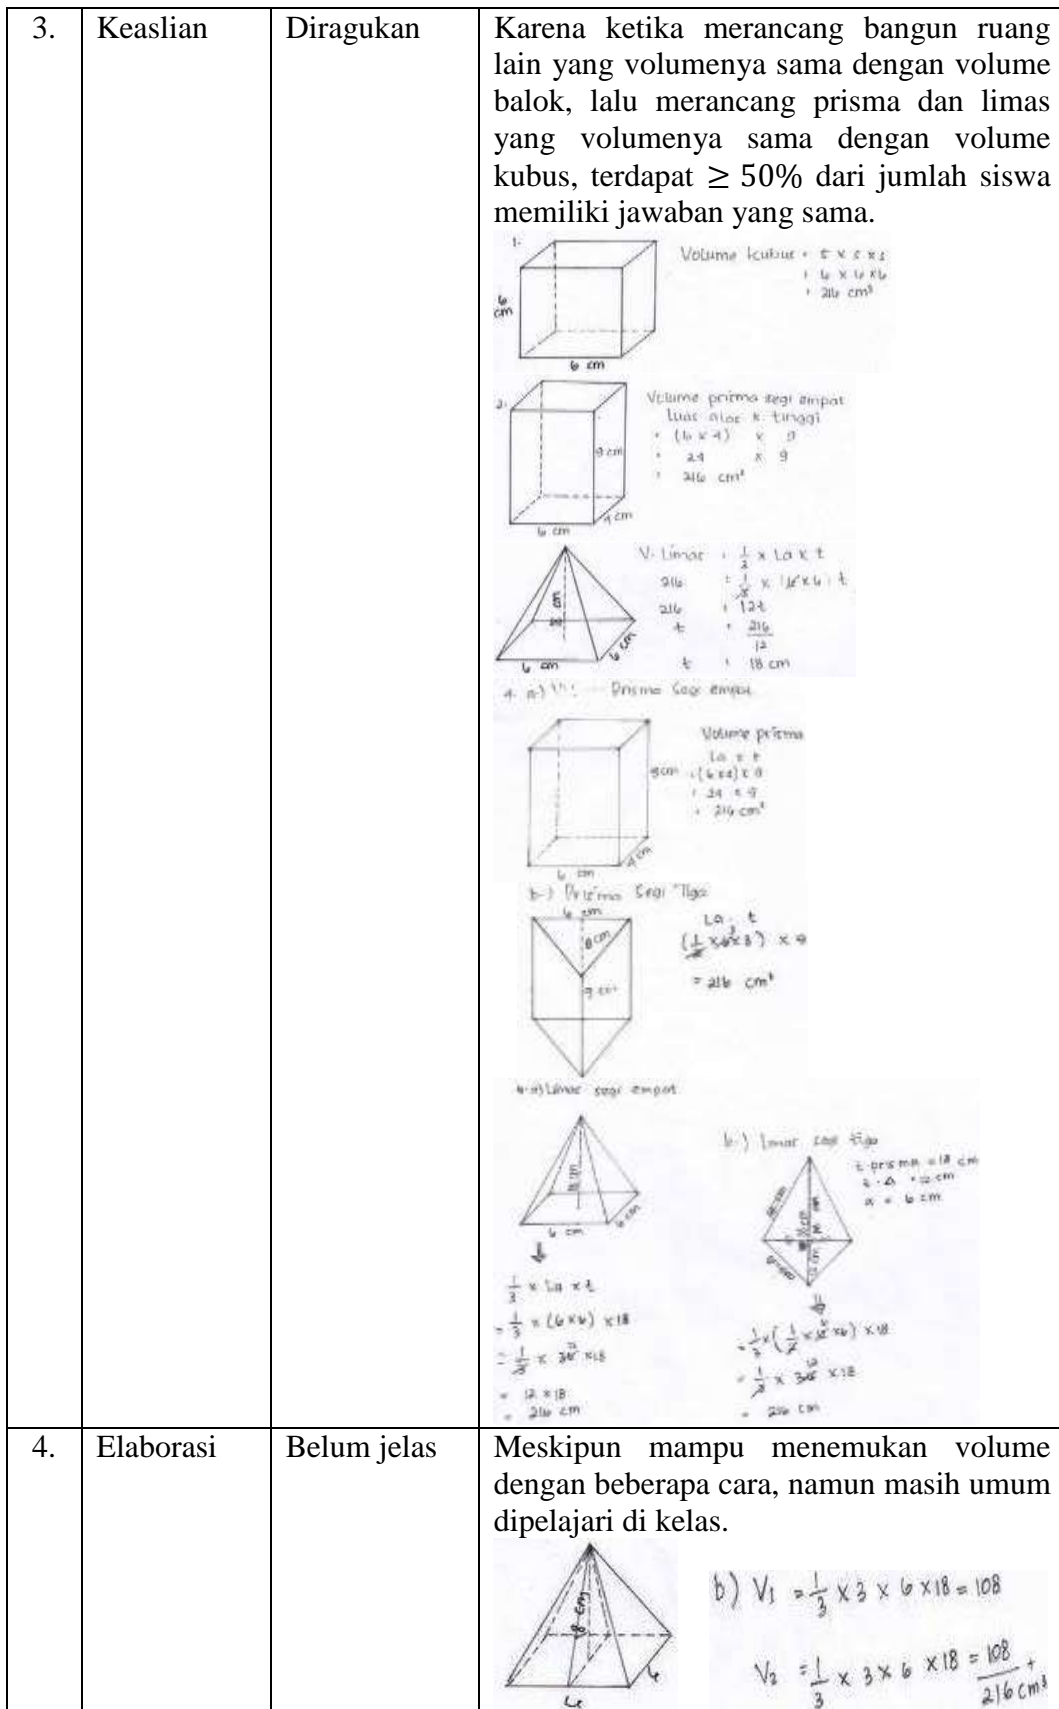 3. Keaslian Diragukan Karena ketika merancang bangun ruang
lain yang volumenya sama dengan volume
balok, lalu merancang prisma dan limas
yang volumenya sama dengan volume
kubus, terdapat ≥ 50% dari jumlah siswa
memiliki jawaban yang sama.
1.
Volume kubus = s x s x s
= 6 x 6 x 6
= 216 cm³
6
cm
6 cm
2.
Volume prisma segi empat
Luas alas x tinggi
= (6 x 4) x 9
= 24 x 9
= 216 cm³
9 cm
4 cm
6 cm
V. Limas = x La x t
216 = x (6 x 6) t
216 = 12t
t = 216/12
t = 18 cm
6 cm
6 cm
4. a.) Prisma Segi empat
Volume prisma
La x t
9 cm = (6 x 4) x 9
= 24 x 9
= 216 cm³
4 cm
6 cm
b.) Prisma Segi Tiga
6 cm
8 cm
9 cm
La . t
(1/2 x 6 x 8) x 9
= 216 cm³
4. a) Limas segi empat
18 cm
6 cm
6 cm
1/3 x La x t
= 1/3 x (6 x 6) x 18
= 1/3 x 36 x 18
= 12 x 18
= 216 cm
b.) Limas segi tiga
t. prisma = 18 cm
t. Δ = 12 cm
a = 6 cm
12 cm
= 1/3 x (1/2 x 12 x 6) x 18
= 1/3 x 36 x 18
= 216 cm
4. Elaborasi Belum jelas Meskipun mampu menemukan volume
dengan beberapa cara, namun masih umum
dipelajari di kelas.
18 cm
6
6
b) V₁ = 1/3 x 3 x 6 x 18 = 108
V₂ = 1/3 x 3 x 6 x 18 = 108 +
216 cm³